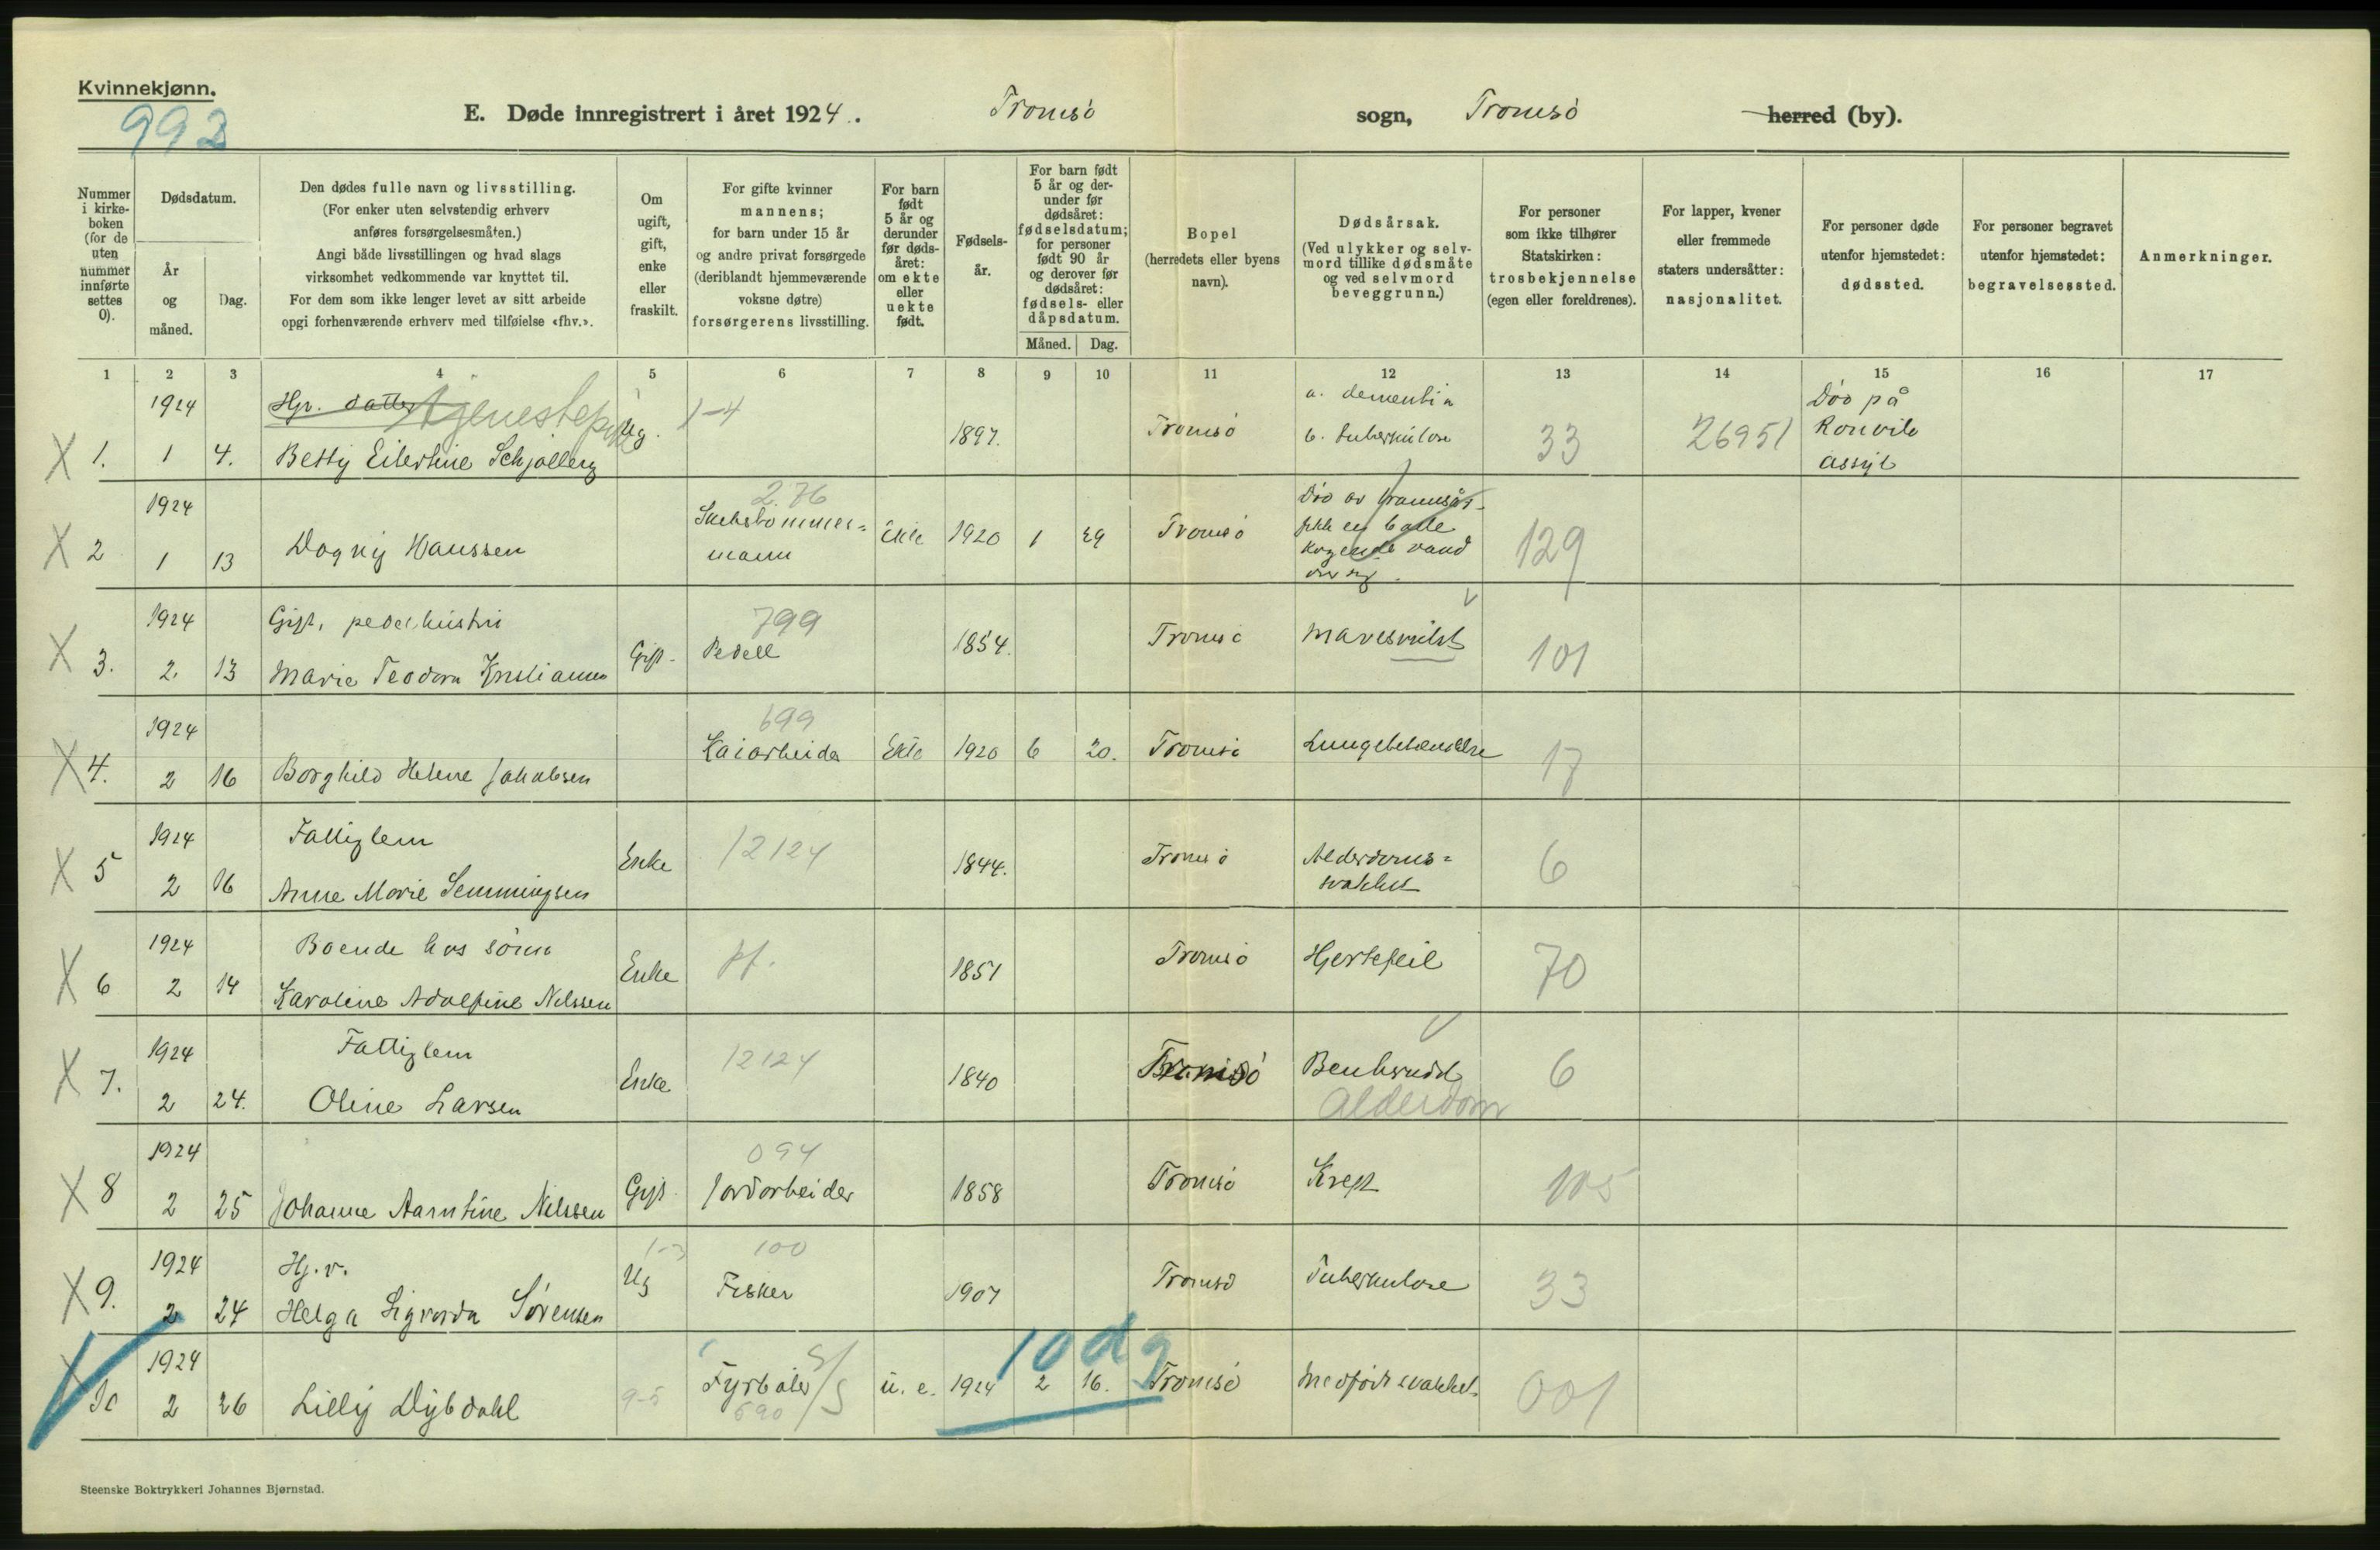 Kvinnekjønn.
992
E. Døde innregistrert i året 1924. Tromsö sogn, Tromsö herred (by).
Nummer i kirke-boken (for de uten nummer innførte settes 0).
Dødsdatum.
År og måned.
Dag.
Den dødes fulle navn og livsstilling.
(For enker uten selvstendig erhverv
anføres forsørgelsesmåten.)
Angi både livsstillingen og hvad slags
virksomhet vedkommende var knyttet til.
For dem som ikke lenger levet av sitt arbeide
opgi forhenværende erhverv med tilføielse «fhv.».
Om ugift, gift, enke eller fraskilt.
For gifte kvinner
mannens;
for barn under 15 år
og andre privat forsørgede
(deriblandt hjemmeværende
voksne døtre)
forsørgerens livsstilling.
For barn født 5 år og derunder før døds-året: om ekte eller uekte født.
Fødsels-år.
For barn født 5 år og der-under før dødsåret: fødselsdatum; for personer født 90 år og derover før dødsåret: fødsels- eller dåpsdatum.
Måned. Dag.
Bopel
(herredets eller byens
navn).
Dødsårsak.
(Ved ulykker og selv-
mord tillike dødsmåte
og ved selvmord
beveggrunn.)
For personer
som ikke tilhører
Statskirken:
trosbekjennelse
(egen eller foreldrenes).
For lapper, kvener
eller fremmede
staters undersåtter:
nasjonalitet.
For personer døde
utenfor hjemstedet:
dødssted.
For personer begravet
utenfor hjemstedet:
begravelsessted.
Anmerkninger.
1 2 3 4 5 6 7 8 9 10 11 12 13 14 15 16 17
1924 Hjv. datter 1-4 a. dementia Död på
X 1. 1 4. Betty Eilertine Schjølberg Ug. 1897. Tromsö b. tuberkulose 33 26951 Rönvik
assyl
1924 276 Död av brannsår
X 2 1 13 Dagny Hanssen Skibstömmer=
mann Ekte 1920 1 29 Tromsö fikk en balle
kogende vand
over sig. 129
1924 Gift, pedelhustru 799
X 3. 2. 13 Marie Teodora Kristiansen Gift. Pedell 1854. Tromsö Mavesvulst 101
1924 699
X 4. 2 16 Borghild Helene Jakobsen Kaiarbeider Ekte 1920 6 20. Tromsö Lungebetendelse 17
1924 Fattiglem
X 5 2 16 Anne Marie Semmingsen Enke 12124 1844. Tromsö Alderdoms=
svakhet 6
1924 Boende hos sönn
X 6 2 14 Karoline Adolfine Nilssen Enke pf. 1851 Tromsö Hjertefeil 70
1924 Fattiglem
X 7. 2 24. Oline Larsen Enke 12124 1840 Tromsö Benbrudd 6
Alderdom
1924 094
X 8 2 25 Johanne Aarntine Nilssen Gift. Jordarbeider 1858 Tromsö Kreft 105
1924 Hj.v. 1-3 100
X 9. 2 24 Helga Sigvarda Sörensen Ug Fisker 1907 Tromsö Tuberkulose 33
1924 10 dg
X 10 2 26 Lilly Dybdahl 9-5 Fyrböter S/S 690 u. e. 1924 2 16. Tromsö Medfödt svakhet. 001
Steenske Boktrykkeri Johannes Bjørnstad.